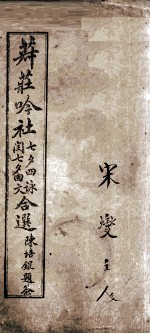 莊吟社
七夕四詠
閏七夕回文
合選
陳培錕題簽
宋燮主人